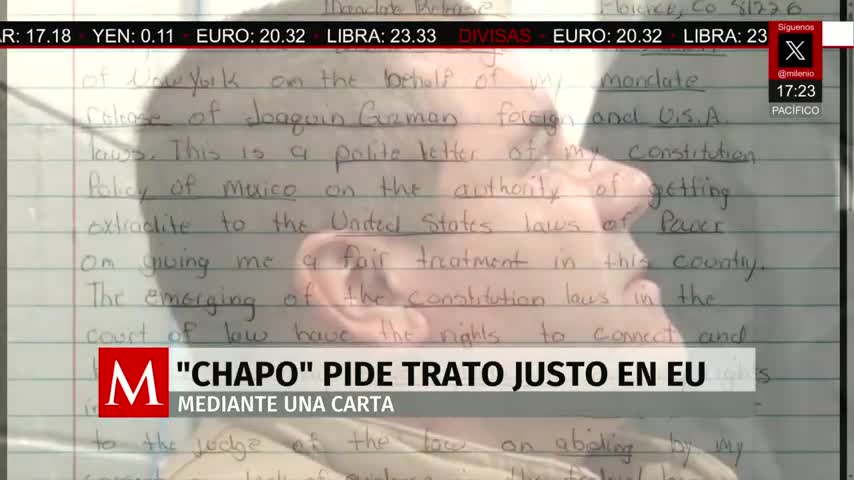 Mandate Release Florence, Co 81226
AR: 17.18 • YEN: 0.11 • EURO: 20.32 • LIBRA: 23.33 DIVISAS • EURO: 20.32 • LIBRA: 23
Síguenos
X
@milenio
17:23
PACÍFICO
of New York on the behalf of my mandate
release of Joaquin Guzman foreign and U.S.A
laws. This is a polite letter of my constitution
Policy of mexico on the authority of getting
extradite to the United States laws of Power
on giving me a fair treatment in this country.
The emerging of the Constitution laws in the
court of law have the rights to connect and
M
"CHAPO" PIDE TRATO JUSTO EN EU
MEDIANTE UNA CARTA
to the judge of the law on abiding by my